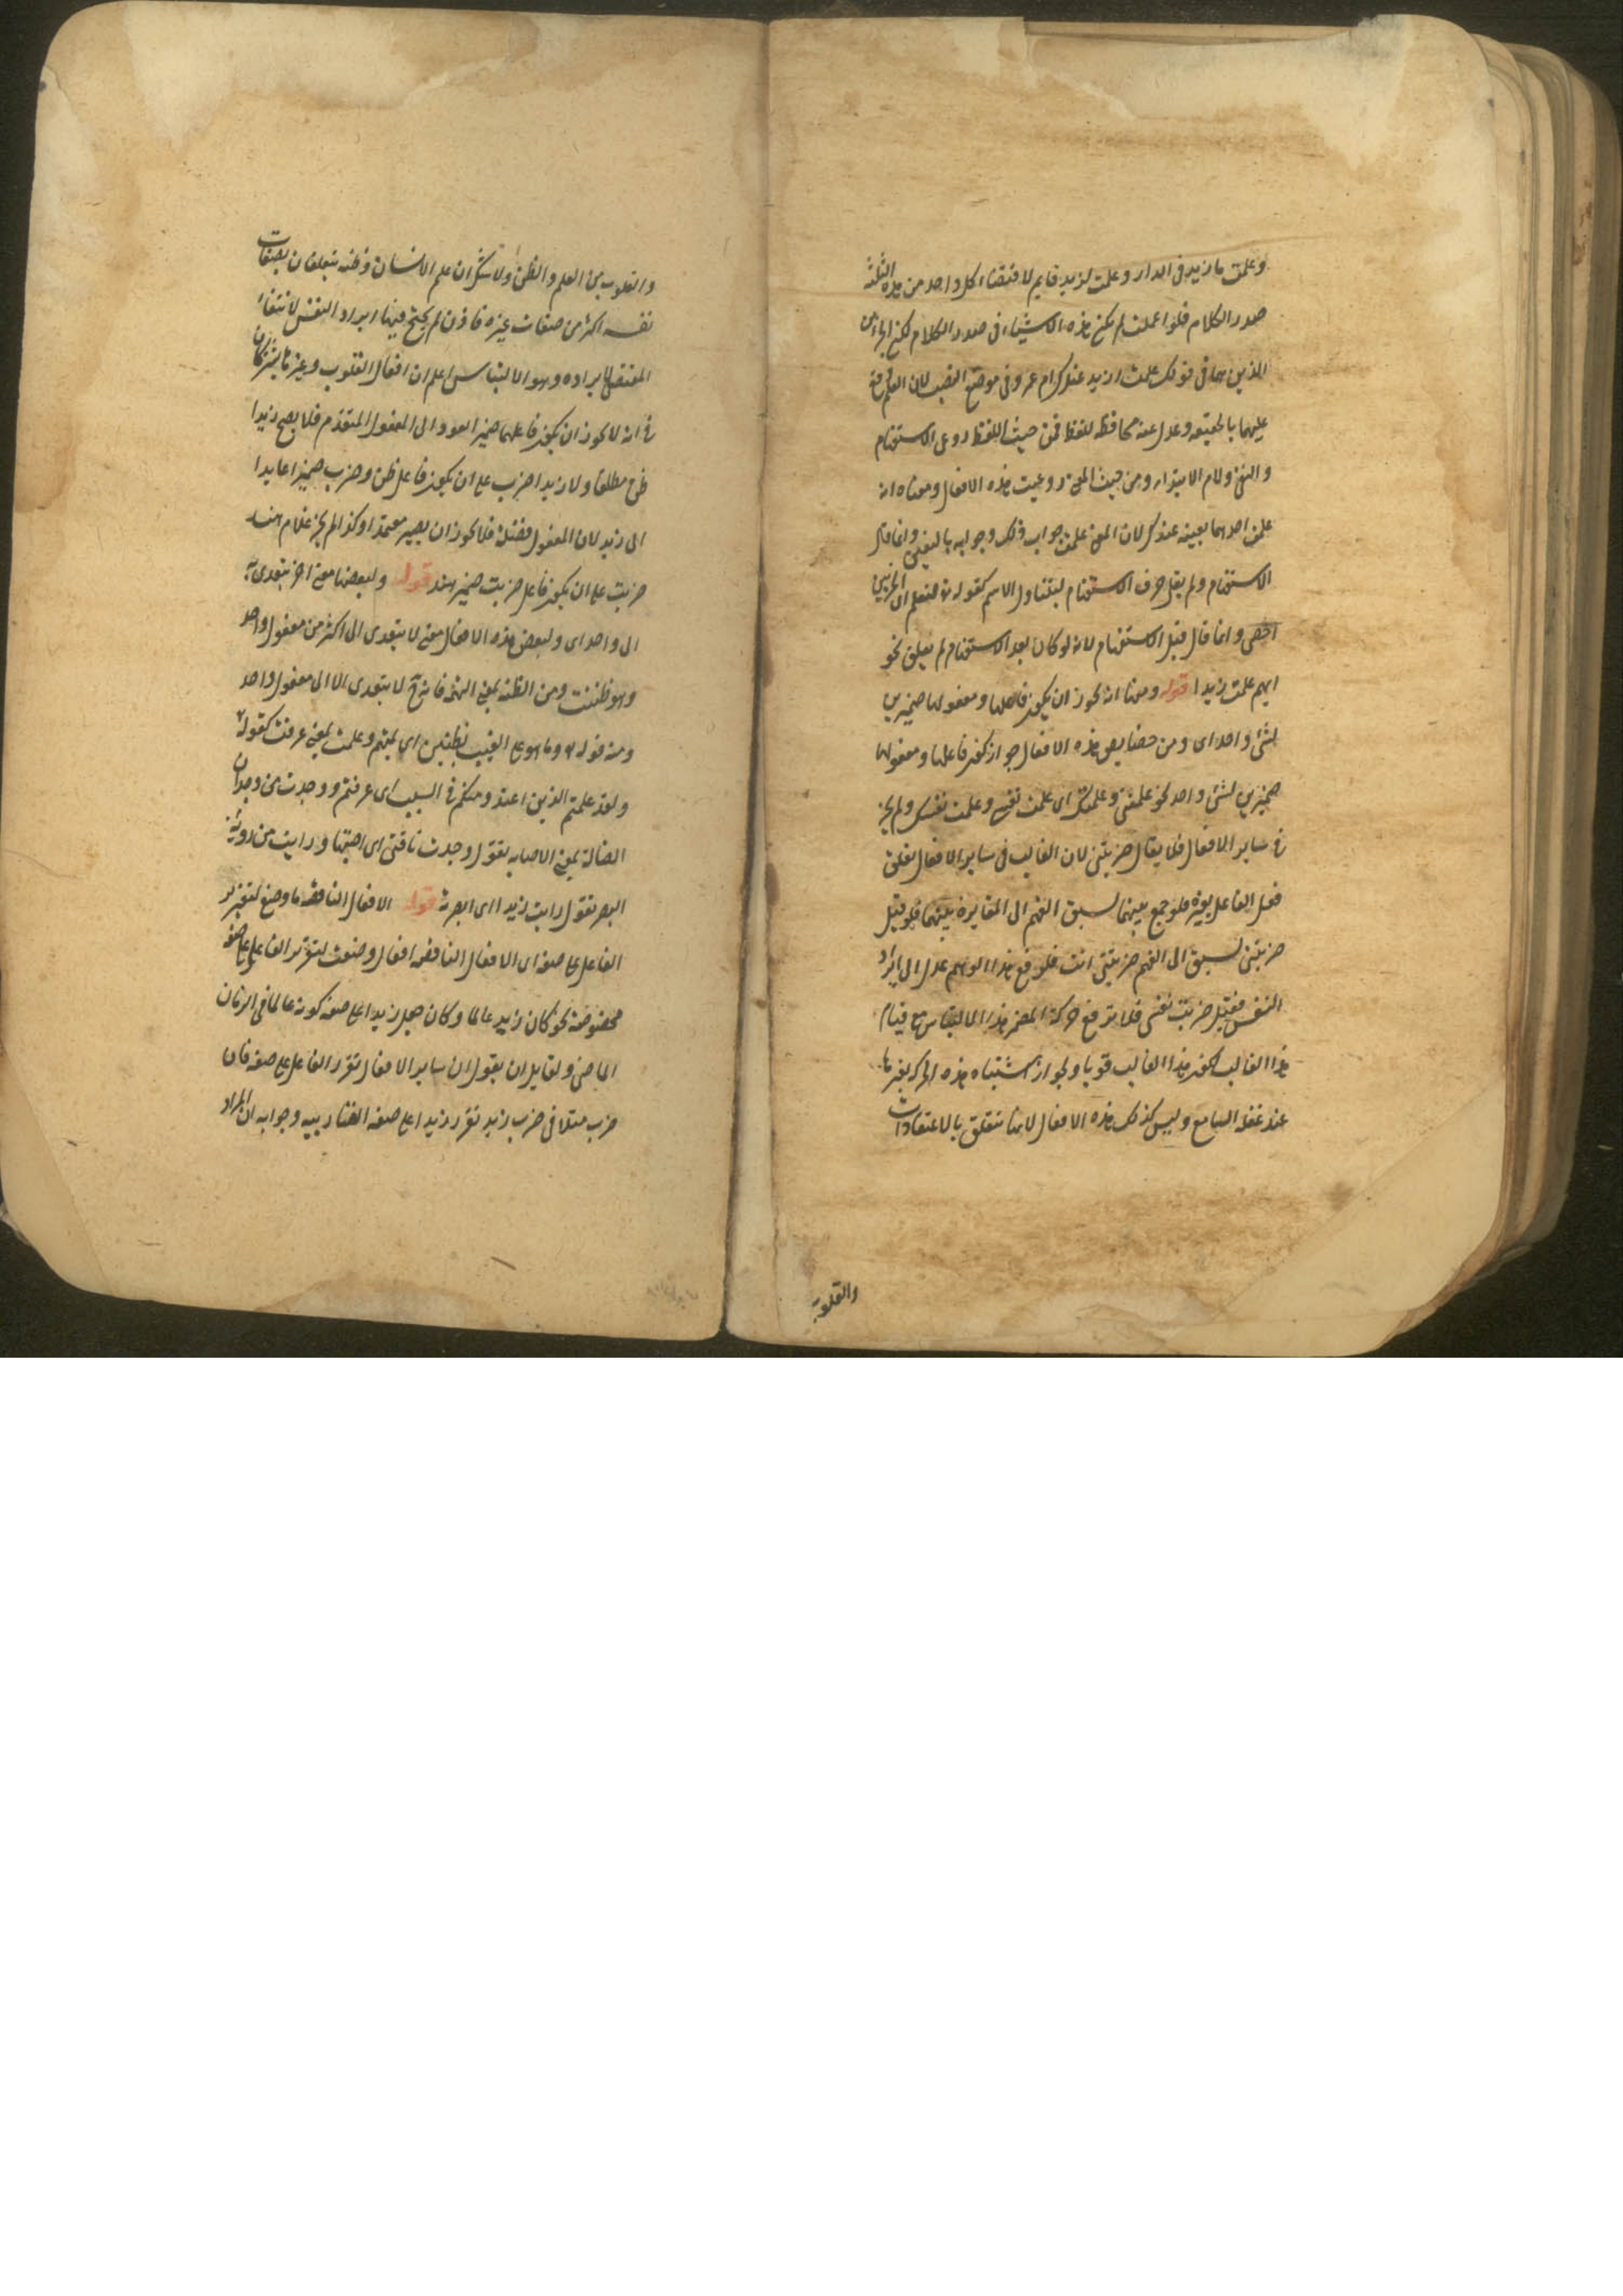 وعلمت ما زيد فى الدار وعلمت لزيد قايم لاقتضاء كل واحد من هذه الثلثة
صدر الكلام فلو اعملت لم يكن هذه الاشياء فى صدر الكلام لكن الجزائين
الذين هما فى قولك علمت ازيد عندك ام عمرو فى موضع النصب لان العلم وقع
عليهما بالحقيقه وعدل عنه محافظة للفظ فمن حيث اللفظ روعى الاستفهام
والنفى ولام الابتداء ومن حيث المعنى روعيت هذه الافعال ومعناه انه
علمت احدهما بعينه عندك لان المعنى علمت جواب ذلك وجوابه بالتعيين وانما قال
الاستفهام ولم يقل حرف الاستفهام ليتناول الاسم كقوله تع لنعلم اى الحزبين
احصى وانما قال قبل الاستفهام لانه لو كان بعد الاستفهام لم يعلق نحو
ايهم علمت زيدا قوله ومنها انه يجوز ان يكون فاعلها ومفعولها ضميرين
لشئ واحد اى ومن خصايص هذه الافعال جواز كون فاعلها ومفعولها
ضميرين لشئ واحد نحو علمتنى وعلمتك اى علمت نفسى وعلمت نفسك ولم يجز
فى ساير الافعال فلا يقال ضربتنى لان الغالب فى ساير الافعال تعلق
فعل الفاعل بغيره فلو جمع بينهما لسبق الفهم الى المغايرة بينهما فلو قيل
ضربتنى لسبق الى الفهم ضربتنى انت فلدفع هذا الوهم عدل الى ايراد
النفس فقيل ضربت نفسى فلا ترفع حركة المضمر هذا الالتباس مع قيام
هذا الغالب لكون هذا الغالب قويا ولجواز اشتباه هذه الحركه بغيرها
عند غفلة السامع وليس كذلك هذه الافعال لانها تتعلق بالاعتقادات
والقلوب
والقلوب من العلم والظن ولا شك ان علم الانسان وظنه يتعلقان بصفات
نفسه اكثر من صفات غيره فاذن لم يحتج فيها ايراد النفس لانتفاء
المقتضى لايراده وهو الالتباس اعلم ان افعال القلوب وغيرها يشتركان
فى انه لا يجوز ان يكون فاعلهما ضميرا يعود الى المفعول المتقدم فلا يصح زيدا
ظن مطلقا ولا زيدا ضرب على ان يكون فاعل ظن وضرب ضميرا عايدا
الى زيد لان المفعول فضلة فلا يجوز ان يصير معتمدا وكذا لم يجز غلام هند
ضربت على ان يكون فاعل ضربت ضمير هند قوله ولبعضها معنى اخر يتعدى به
الى واحد اى ولبعض هذه الافعال معنى لا يتعدى الى اكثر من مفعول واحد
وهو ظننت ومن الظنة بمعنى التهمة فانه ح لا يتعدى الا الى مفعول واحد
ومنه قوله تع وما هو على الغيب بظنين اى بمتهم وعلمت بمعنى عرفت كقوله تع
ولقد علمتم الذين اعتدوا منكم فى السبت اى عرفتم ووجدت من وجدان
الضالة بمعنى الاصابه تقول وجدت ناقتى اى اصبتها ورايت من روية
البصر تقول رايت زيدا اى ابصرته قوله الافعال الناقصة ما وضع لتقرير
الفاعل على صفة اى الافعال الناقصه افعال وضعت لتقرير الفاعل على صفة
مخصوصة نحو كان زيد عالما وكان جعل زيدا على صفة كونه عالما فى الزمان
الماضى ولقايل ان يقول ان ساير الافعال تقرر الفاعل على صفه فان
ضرب مثلا فى ضرب زيد تقرر زيدا على صفه الضاربيه وجوابه ان المراد